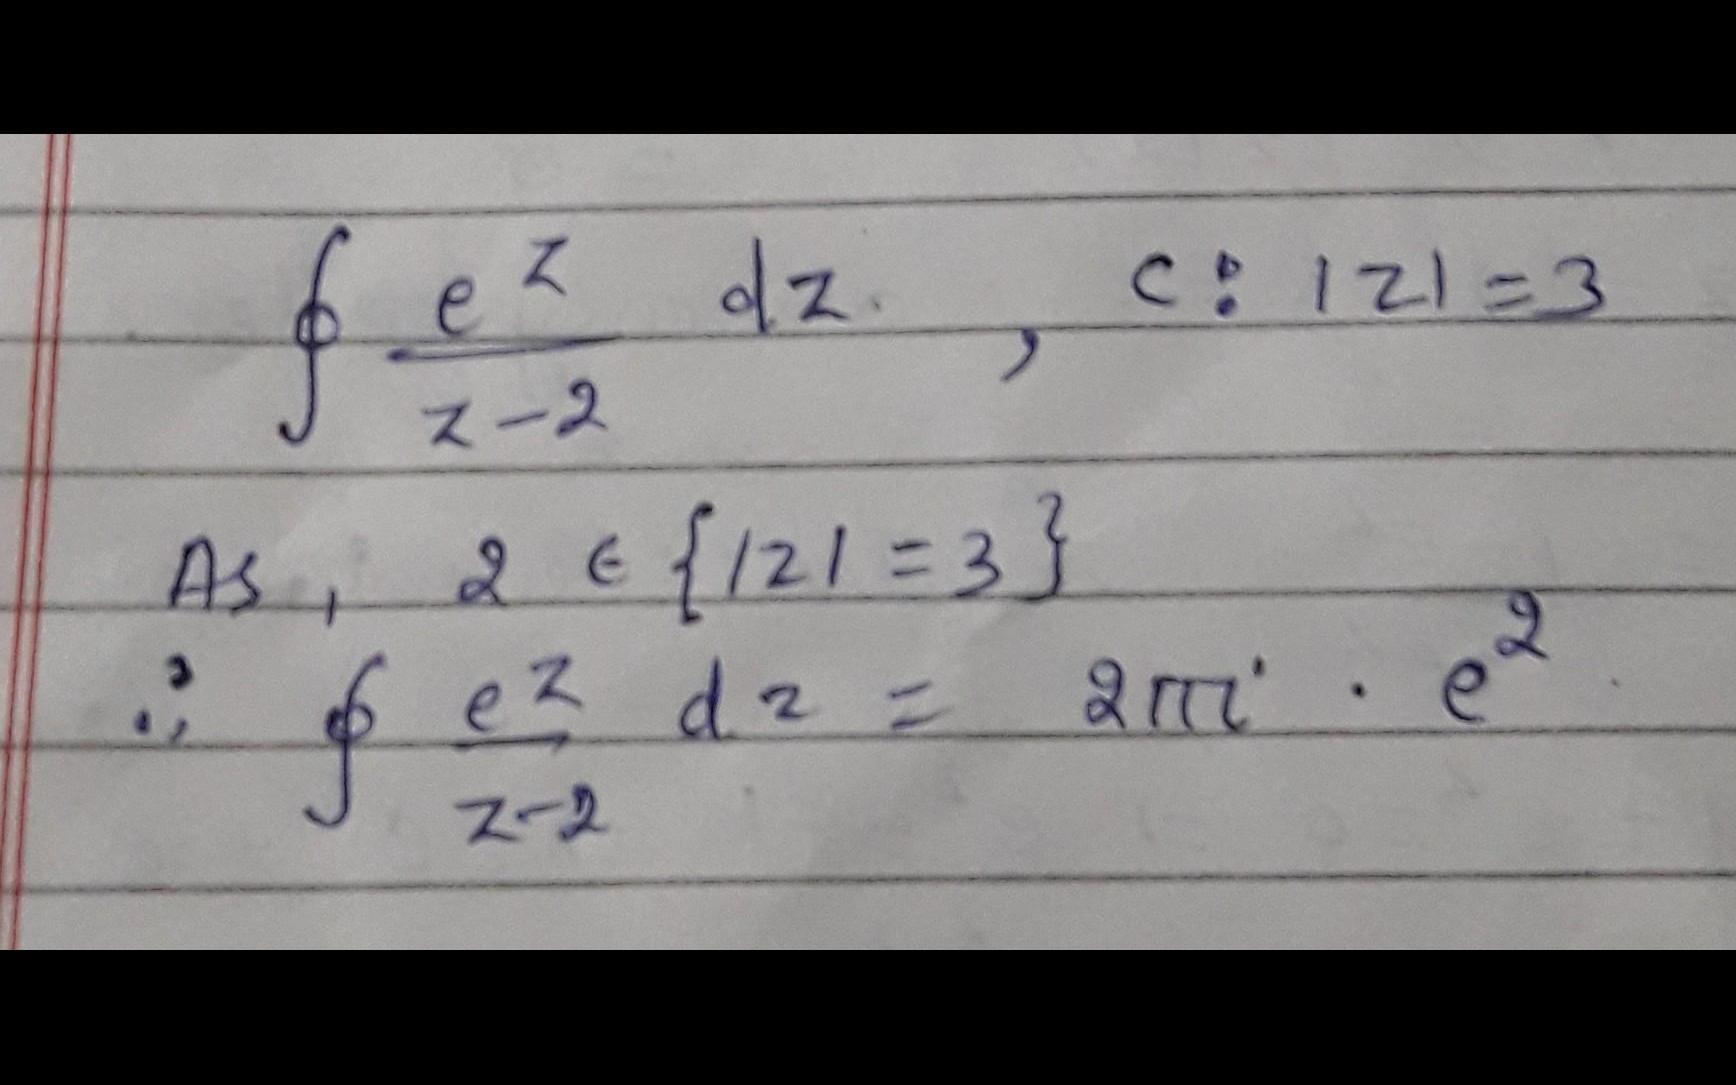 ∮ e^z / (z-2) dz. , C: |z| = 3
As, 2 ∈ {|z| = 3}
∴ ∮ e^z / (z-2) dz = 2πi · e^2